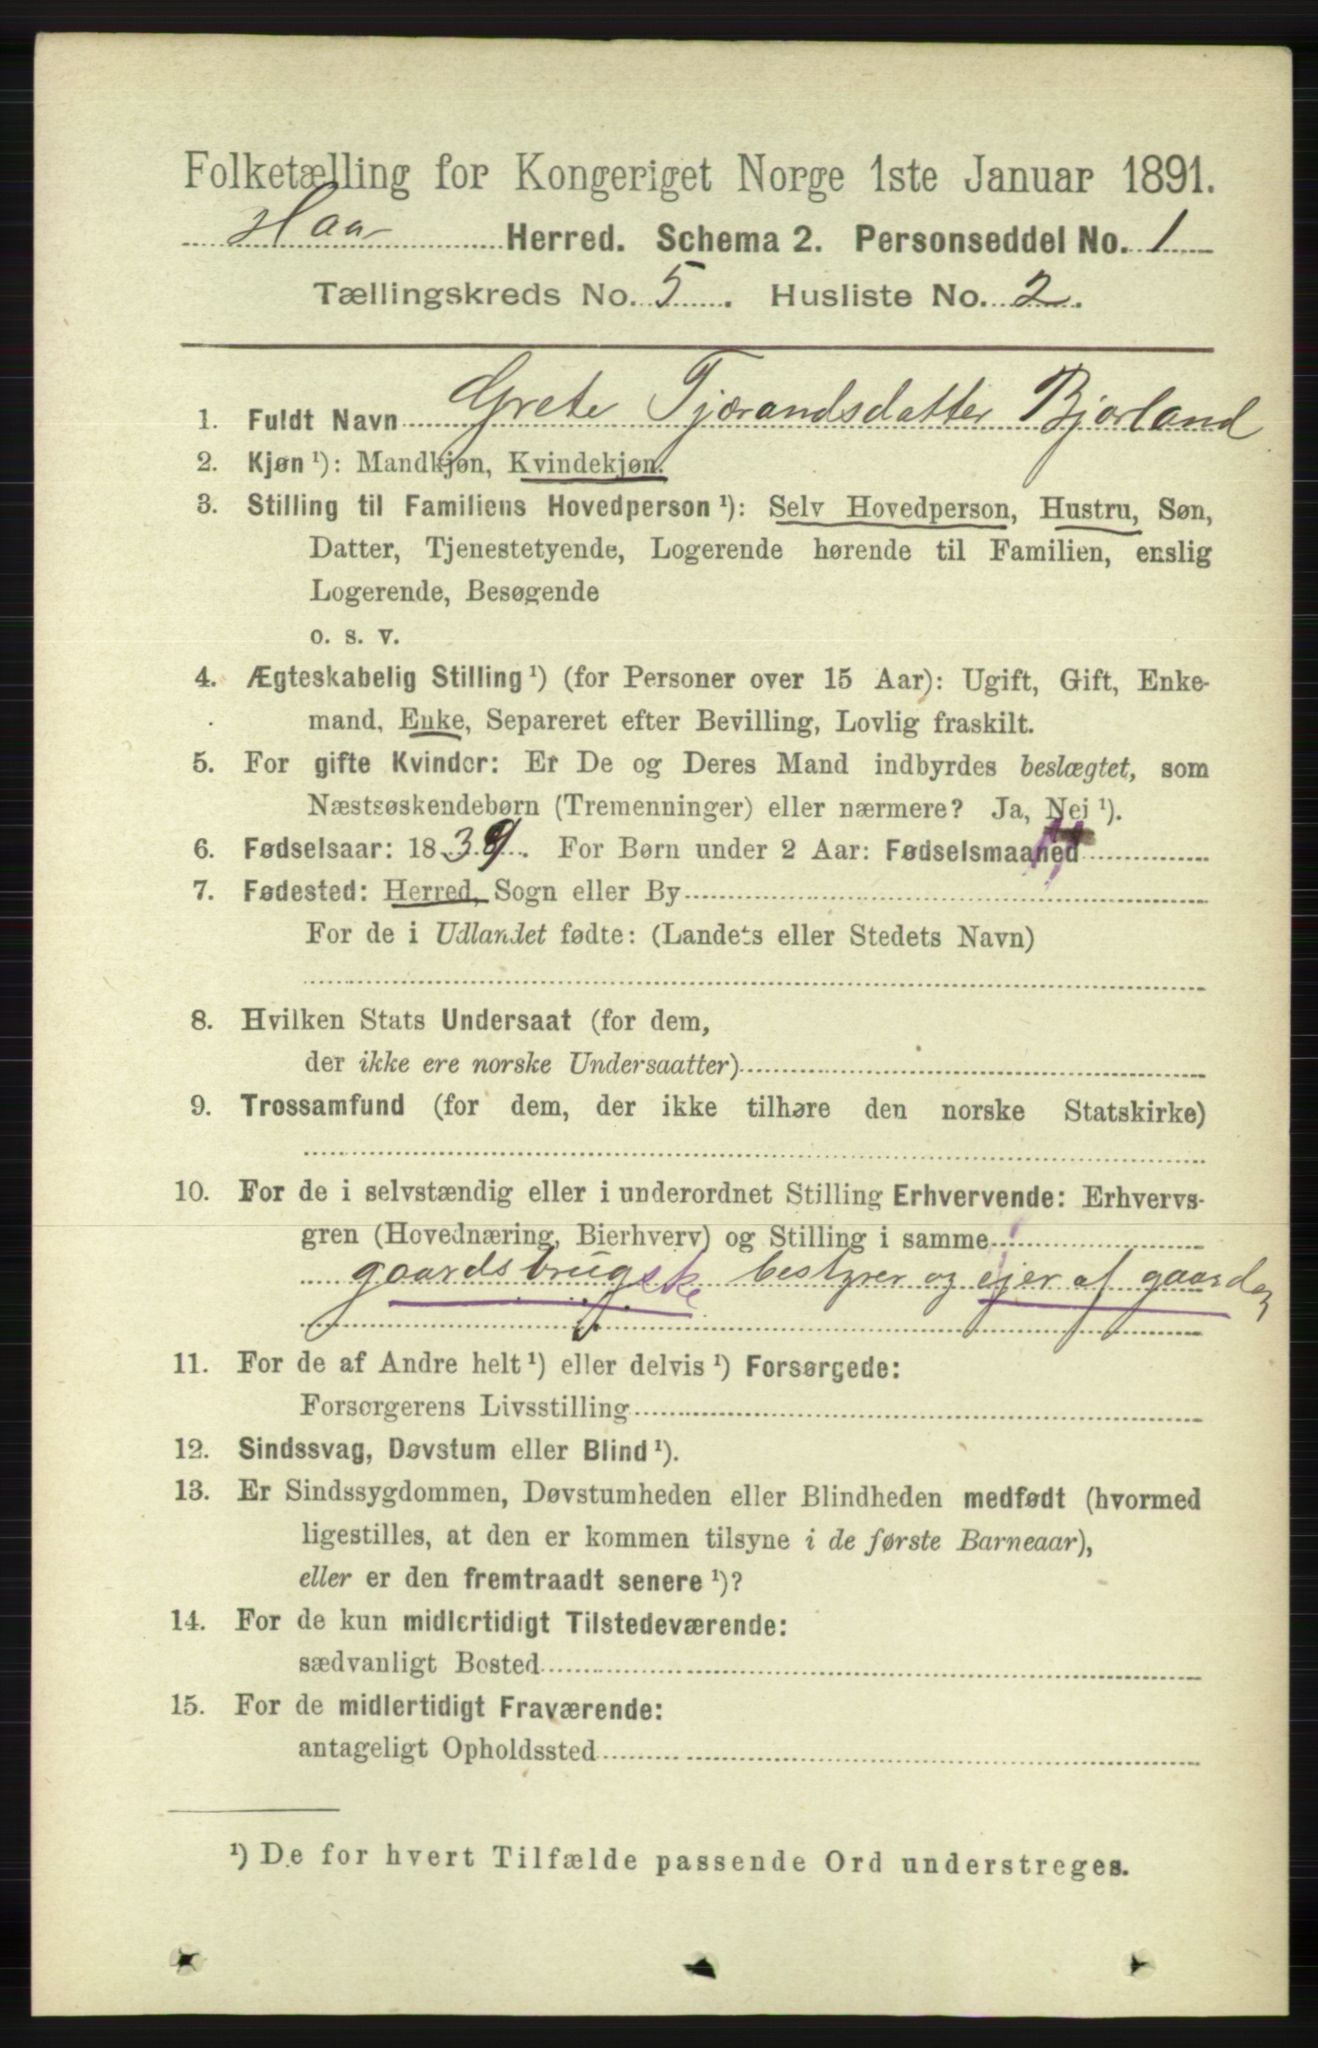 Folketælling for Kongeriget Norge 1ste Januar 1891.
Haa Herred. Schema 2. Personseddel No. 1
Tællingskreds No. 5. Husliste No. 2.
1. Fuldt Navn Grete Tjærandsdatter Bjorland
2. Kjøn ¹): Mandkjøn, Kvindekjøn.
3. Stilling til Familiens Hovedperson ¹): Selv Hovedperson, Hustru, Søn,
Datter, Tjenestetyende, Logerende hørende til Familien, enslig
Logerende, Besøgende
o. s. v.
4. Ægteskabelig Stilling ¹) (for Personer over 15 Aar): Ugift, Gift, Enke-
mand, Enke, Separeret efter Bevilling, Lovlig fraskilt.
5. For gifte Kvinder: Er De og Deres Mand indbyrdes beslægtet, som
Næstsøskendebørn (Tremenninger) eller nærmere? Ja, Nei ¹).
6. Fødselsaar: 1839. For Børn under 2 Aar: Fødselsmaaned
7. Fødested: Herred, Sogn eller By
For de i Udlandet fødte: (Landets eller Stedets Navn)
8. Hvilken Stats Undersaat (for dem,
der ikke ere norske Undersaatter)
9. Trossamfund (for dem, der ikke tilhøre den norske Statskirke)
10. For de i selvstændig eller i underordnet Stilling Erhvervende: Erhvervs-
gren (Hovednæring, Bierhverv) og Stilling i samme
gaardsbrugske bestyrer og ejer af gaarden
11. For de af Andre helt ¹) eller delvis ¹) Forsørgede:
Forsørgerens Livsstilling
12. Sindssvag, Døvstum eller Blind ¹).
13. Er Sindssygdommen, Døvstumheden eller Blindheden medfødt (hvormed
ligestilles, at den er kommen tilsyne i de første Barneaar),
eller er den fremtraadt senere ¹)?
14. For de kun midlertidigt Tilstedeværende:
sædvanligt Bosted
15. For de midlertidigt Fraværende:
antageligt Opholdssted
¹) De for hvert Tilfælde passende Ord understreges.